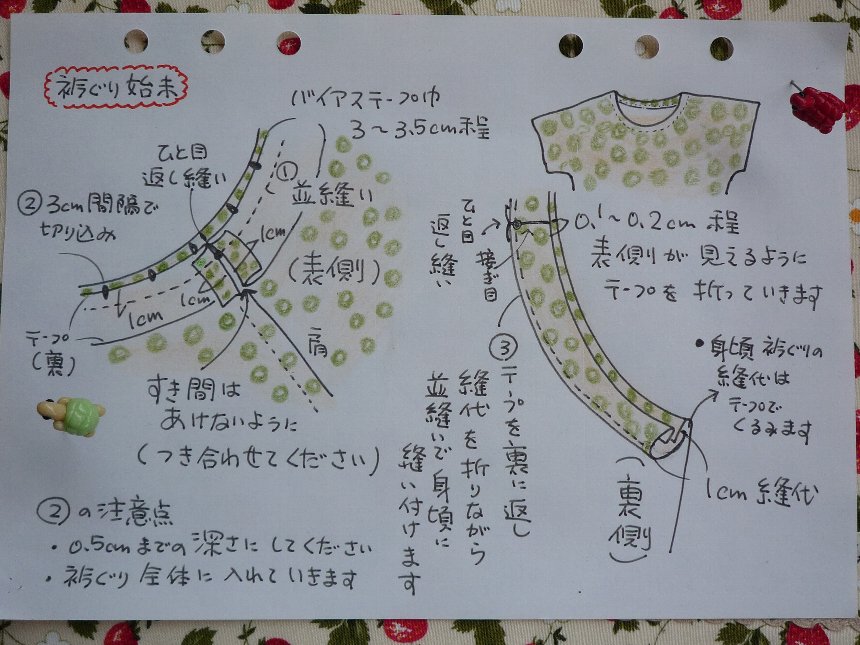 衿ぐり始末
バイアステープ巾
3〜3.5cm程
ひと目
返し縫い
①
並縫い
② 3cm間隔で
切り込み
1cm
1cm
1cm
(表側)
テープ
(裏)
肩
すき間は
あけないように
(つき合わせてください)
②の注意点
・0.5cmまでの深さにしてください
・衿ぐり全体に入れていきます
ひと目
返し縫い
接ぎ目
0.1〜0.2cm程
表側が見えるように
テープを折っていきます
③
テープを裏に返し
縫代を折りながら
並縫いで身頃に
縫い付けます
・身頃衿ぐりの
縫代は
テープで
くるみます
1cm縫代
(裏側)